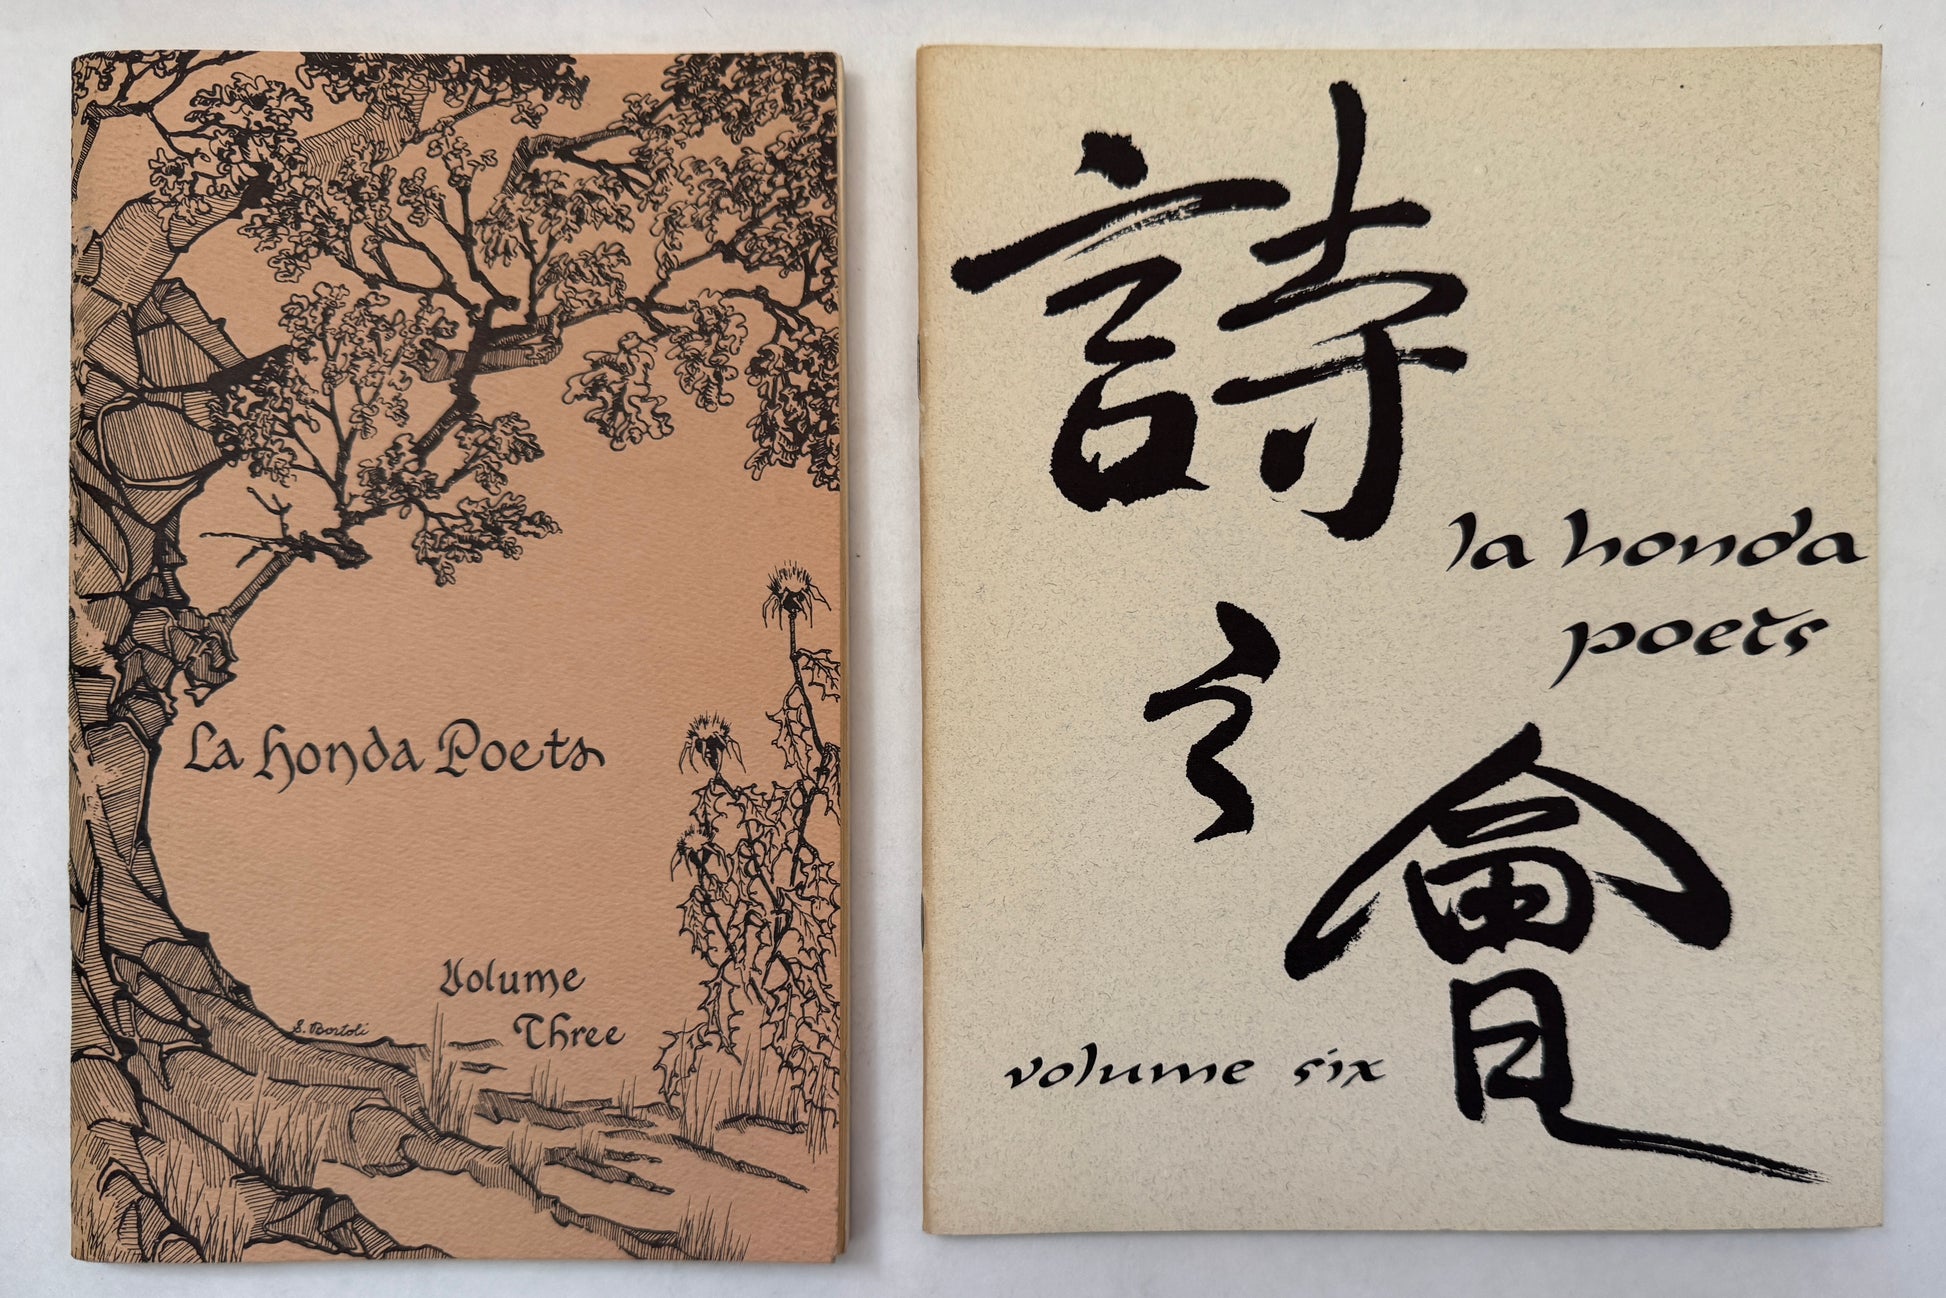 La Honda Poets
Volume
Three
S. Bortoli
詩
之
會
la honda
poets
volume six